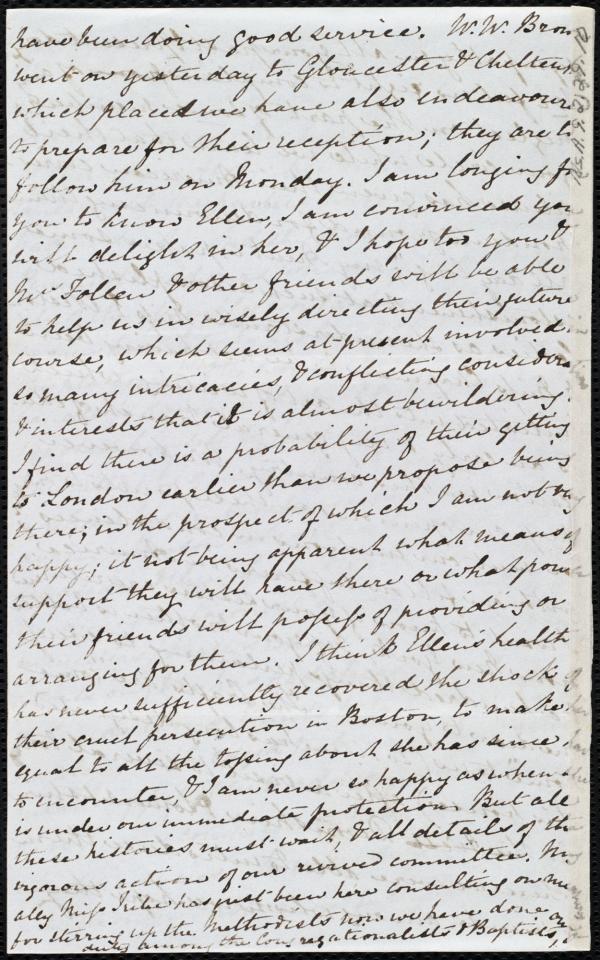 have been doing good service. W. W. Brown
went on yesterday to Gloucester & Chelten
which places we have also endeavoure
to prepare for their reception; they are to
follow him on Monday. I am longing for
you to know Ellen, I am convinced you
will delight in her, & I hope too you &
Mrs Follen & other friends will be able
to help us in wisely directing their future
course, which seems at present involved
so many intricacies, & conflicting consider
& interests that it is almost bewildering.
I find there is a probability of their getting
to London earlier than we propose being
there; in the prospect of which I am not
happy; it not being apparent what means of
support they will have there or what power
their friends will possess of providing or
arranging for them. I think Ellen's health
has never sufficiently recovered the shock of
their cruel persecution in Boston, to make
equal to all the tossing about she has since
to encounter, & I am never so happy as when
is under our immediate protection. But all
these histories must wait, & all details of the
vigorous action of our revived committee. My
ally Miss Tribe has just been here consulting on
for stirring up the Methodists now we have done our
duty among the Congregationalists & Baptists,